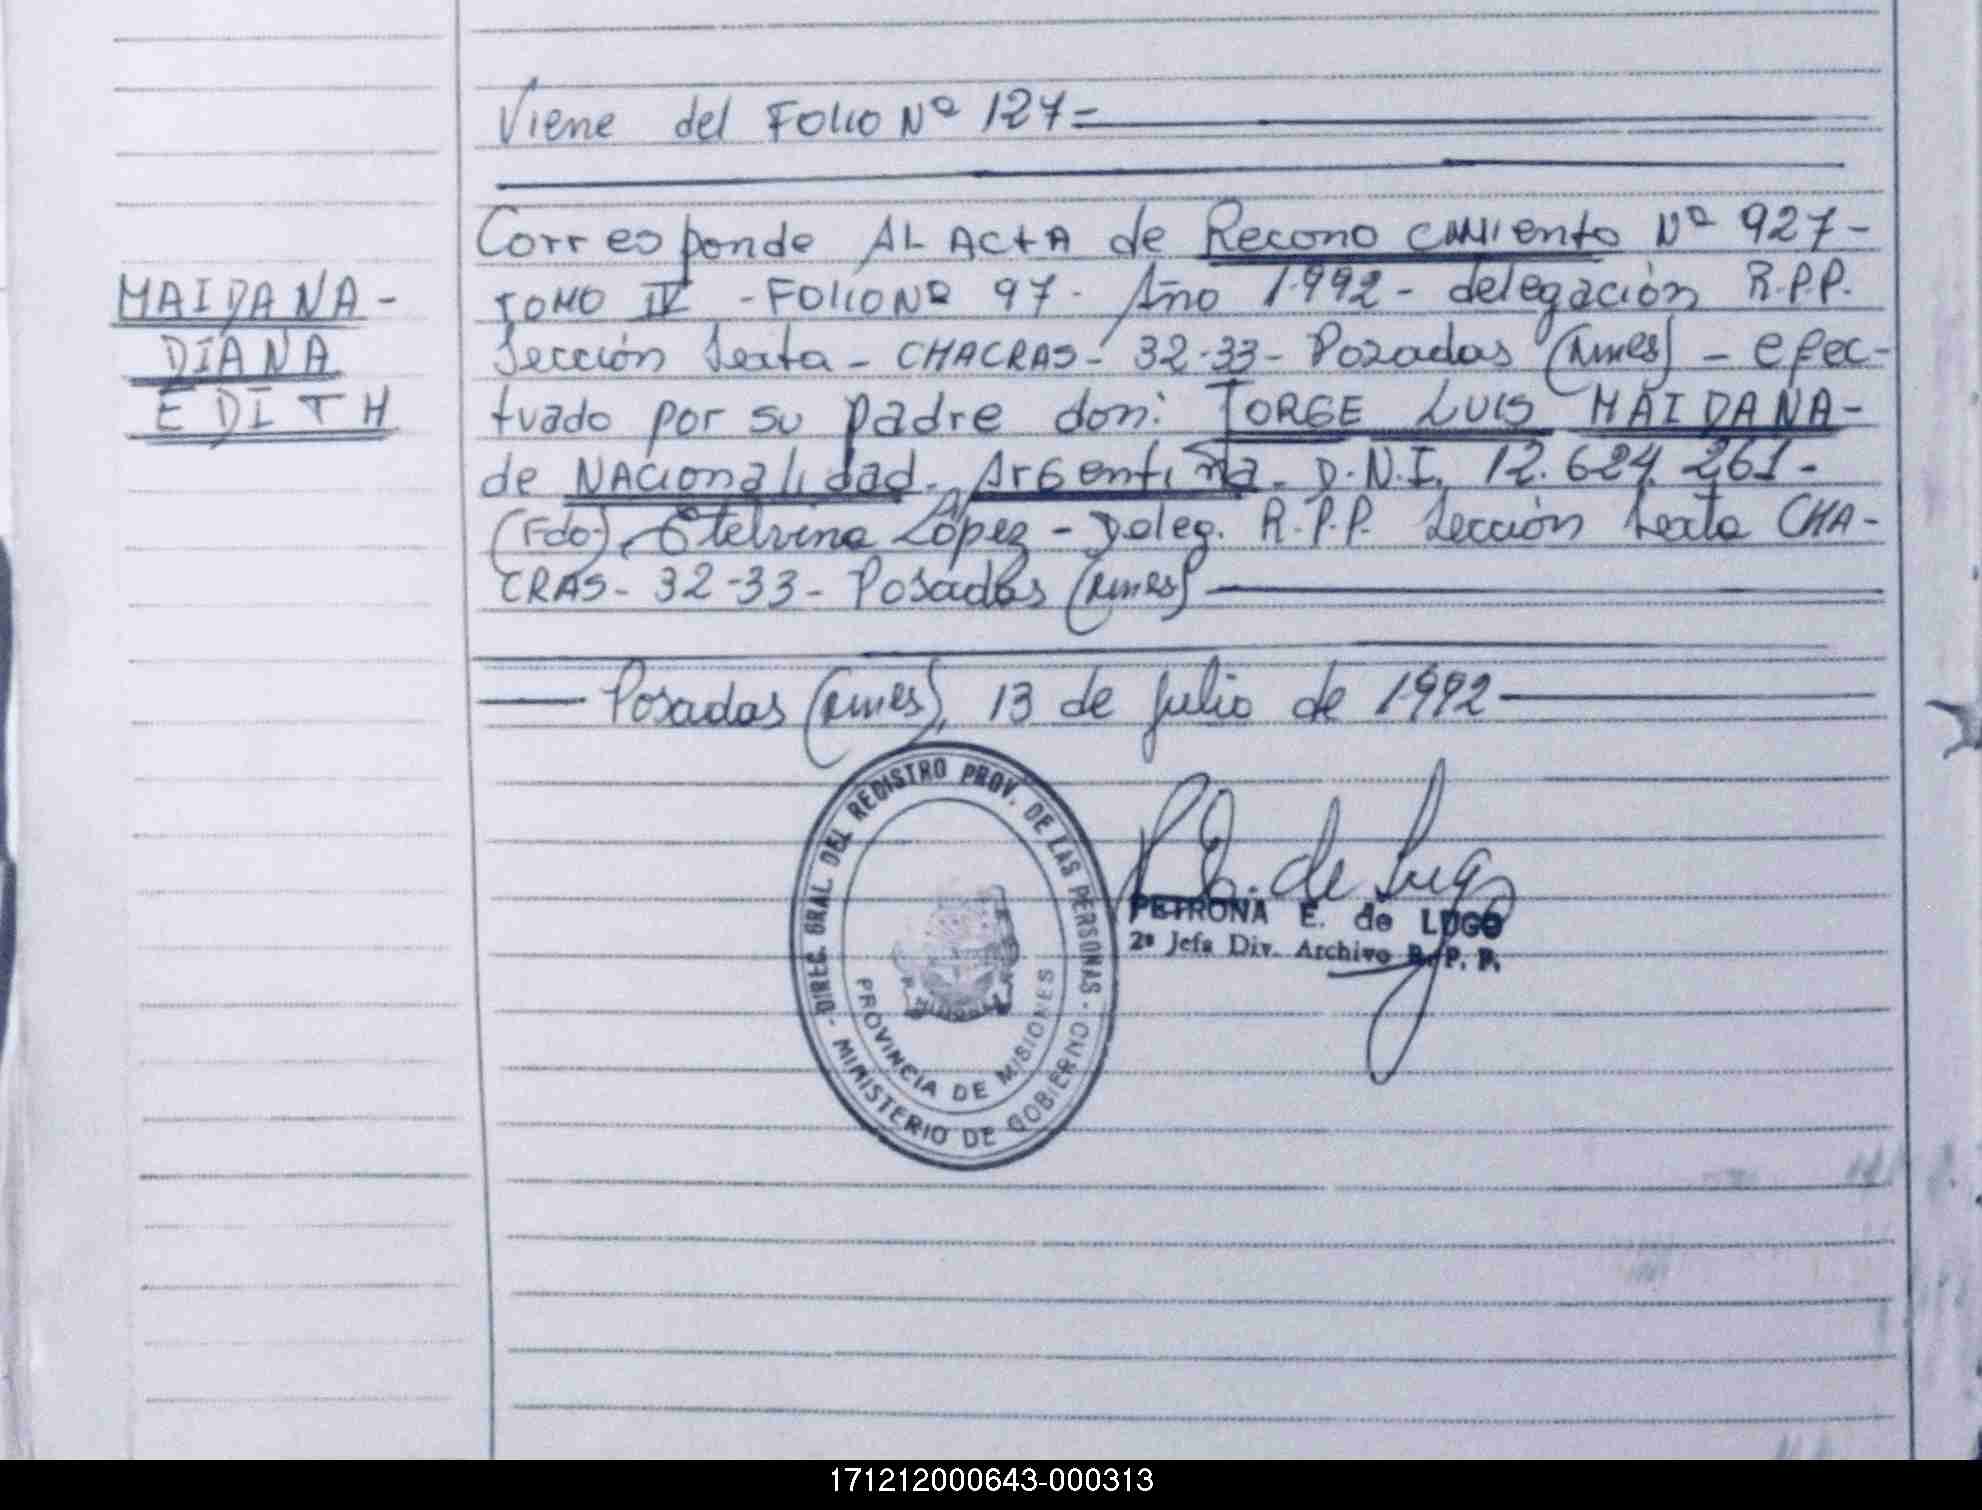 Viene del Folio Nº 127=
Corresponde AL ActA de Reconocimiento Nº 927-
MAIDANA -
DIANA
EDITH
TOMO IV - Folio Nº 97 - Año 1.992 - delegación R.P.P.
Sección Sexta - CHACRAS - 32-33 - Pozadas (Mnes) - efec-
tuado por su padre don: JORGE LUIS MAIDANA -
de NAcionalidad - ArGentina - D.N.I. 12.624.261 -
(Fdo) Etelvina López - Deleg. R.P.P. Sección Sexta CHA-
CRAS - 32-33 - Posadas (Mnes)
Posadas (Mnes), 13 de julio de 1.992
DIREC. GRAL. DEL REGISTRO PROV. DE LAS PERSONAS
MINISTERIO DE GOBIERNO
PROVINCIA DE MISIONES
P. E. de Lugo
PETRONA E. de LUGO
2ª Jefa Div. Archivo R. P. P.
171212000643-000313